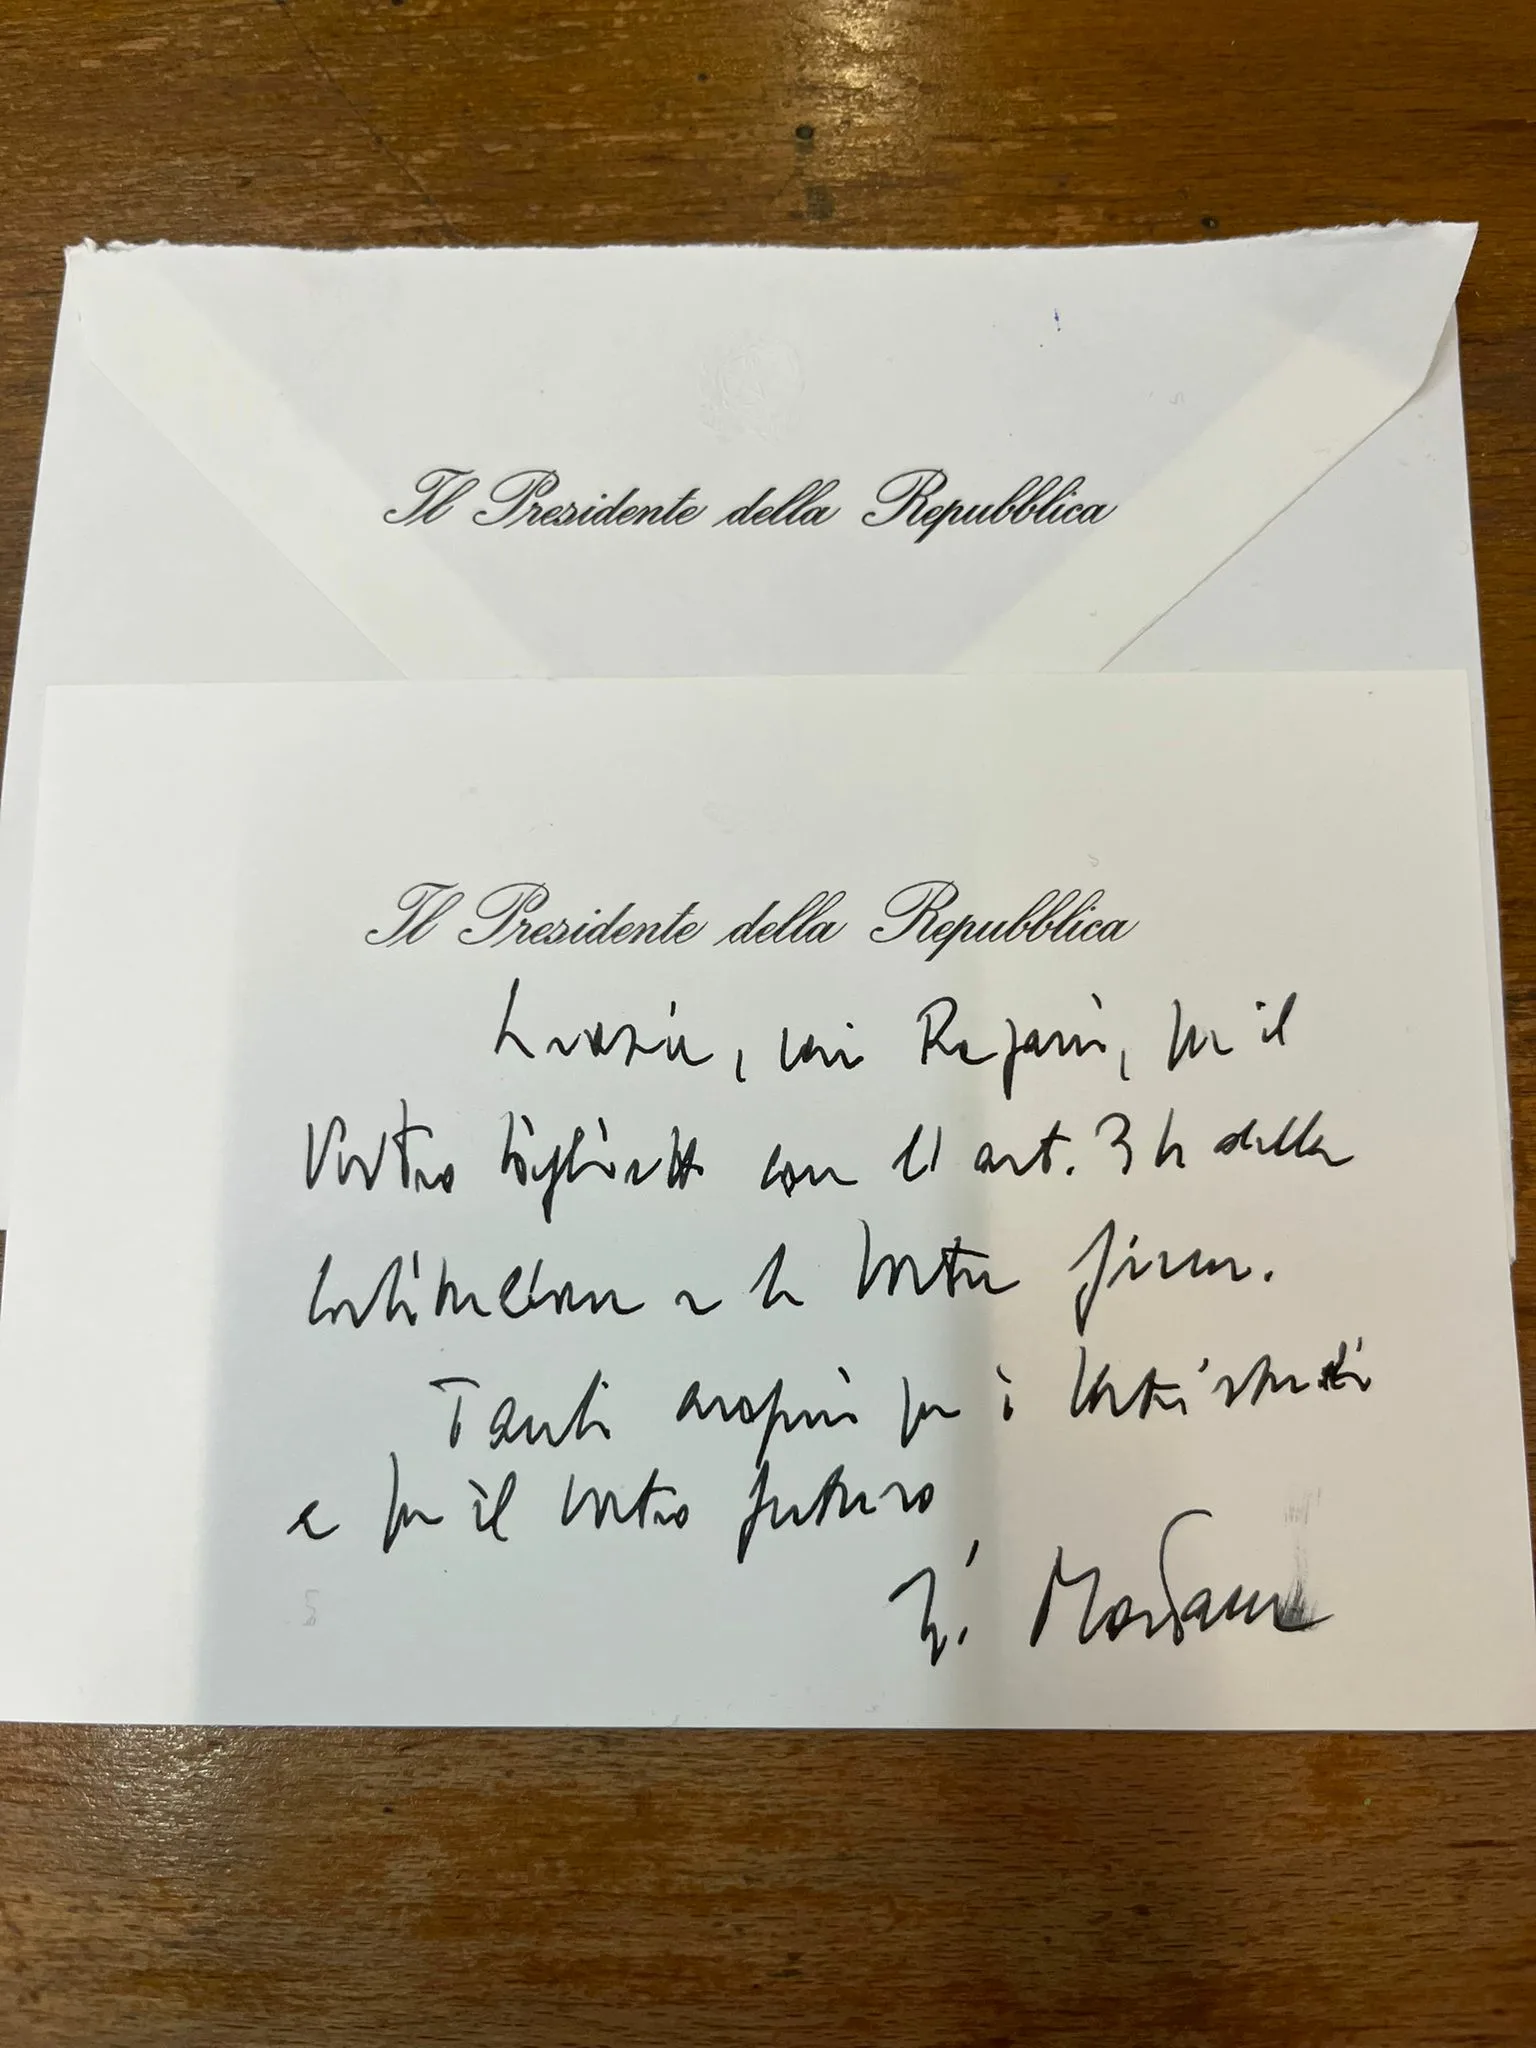 Il Presidente della Repubblica
Il Presidente della Repubblica
Grazie, cari Ragazzi, per il
Vostro biglietto con l'art. 34 della
Costituzione e le Vostre firme.
Tanti auguri per i Vostri studi
e per il Vostro futuro
S. Mattarella